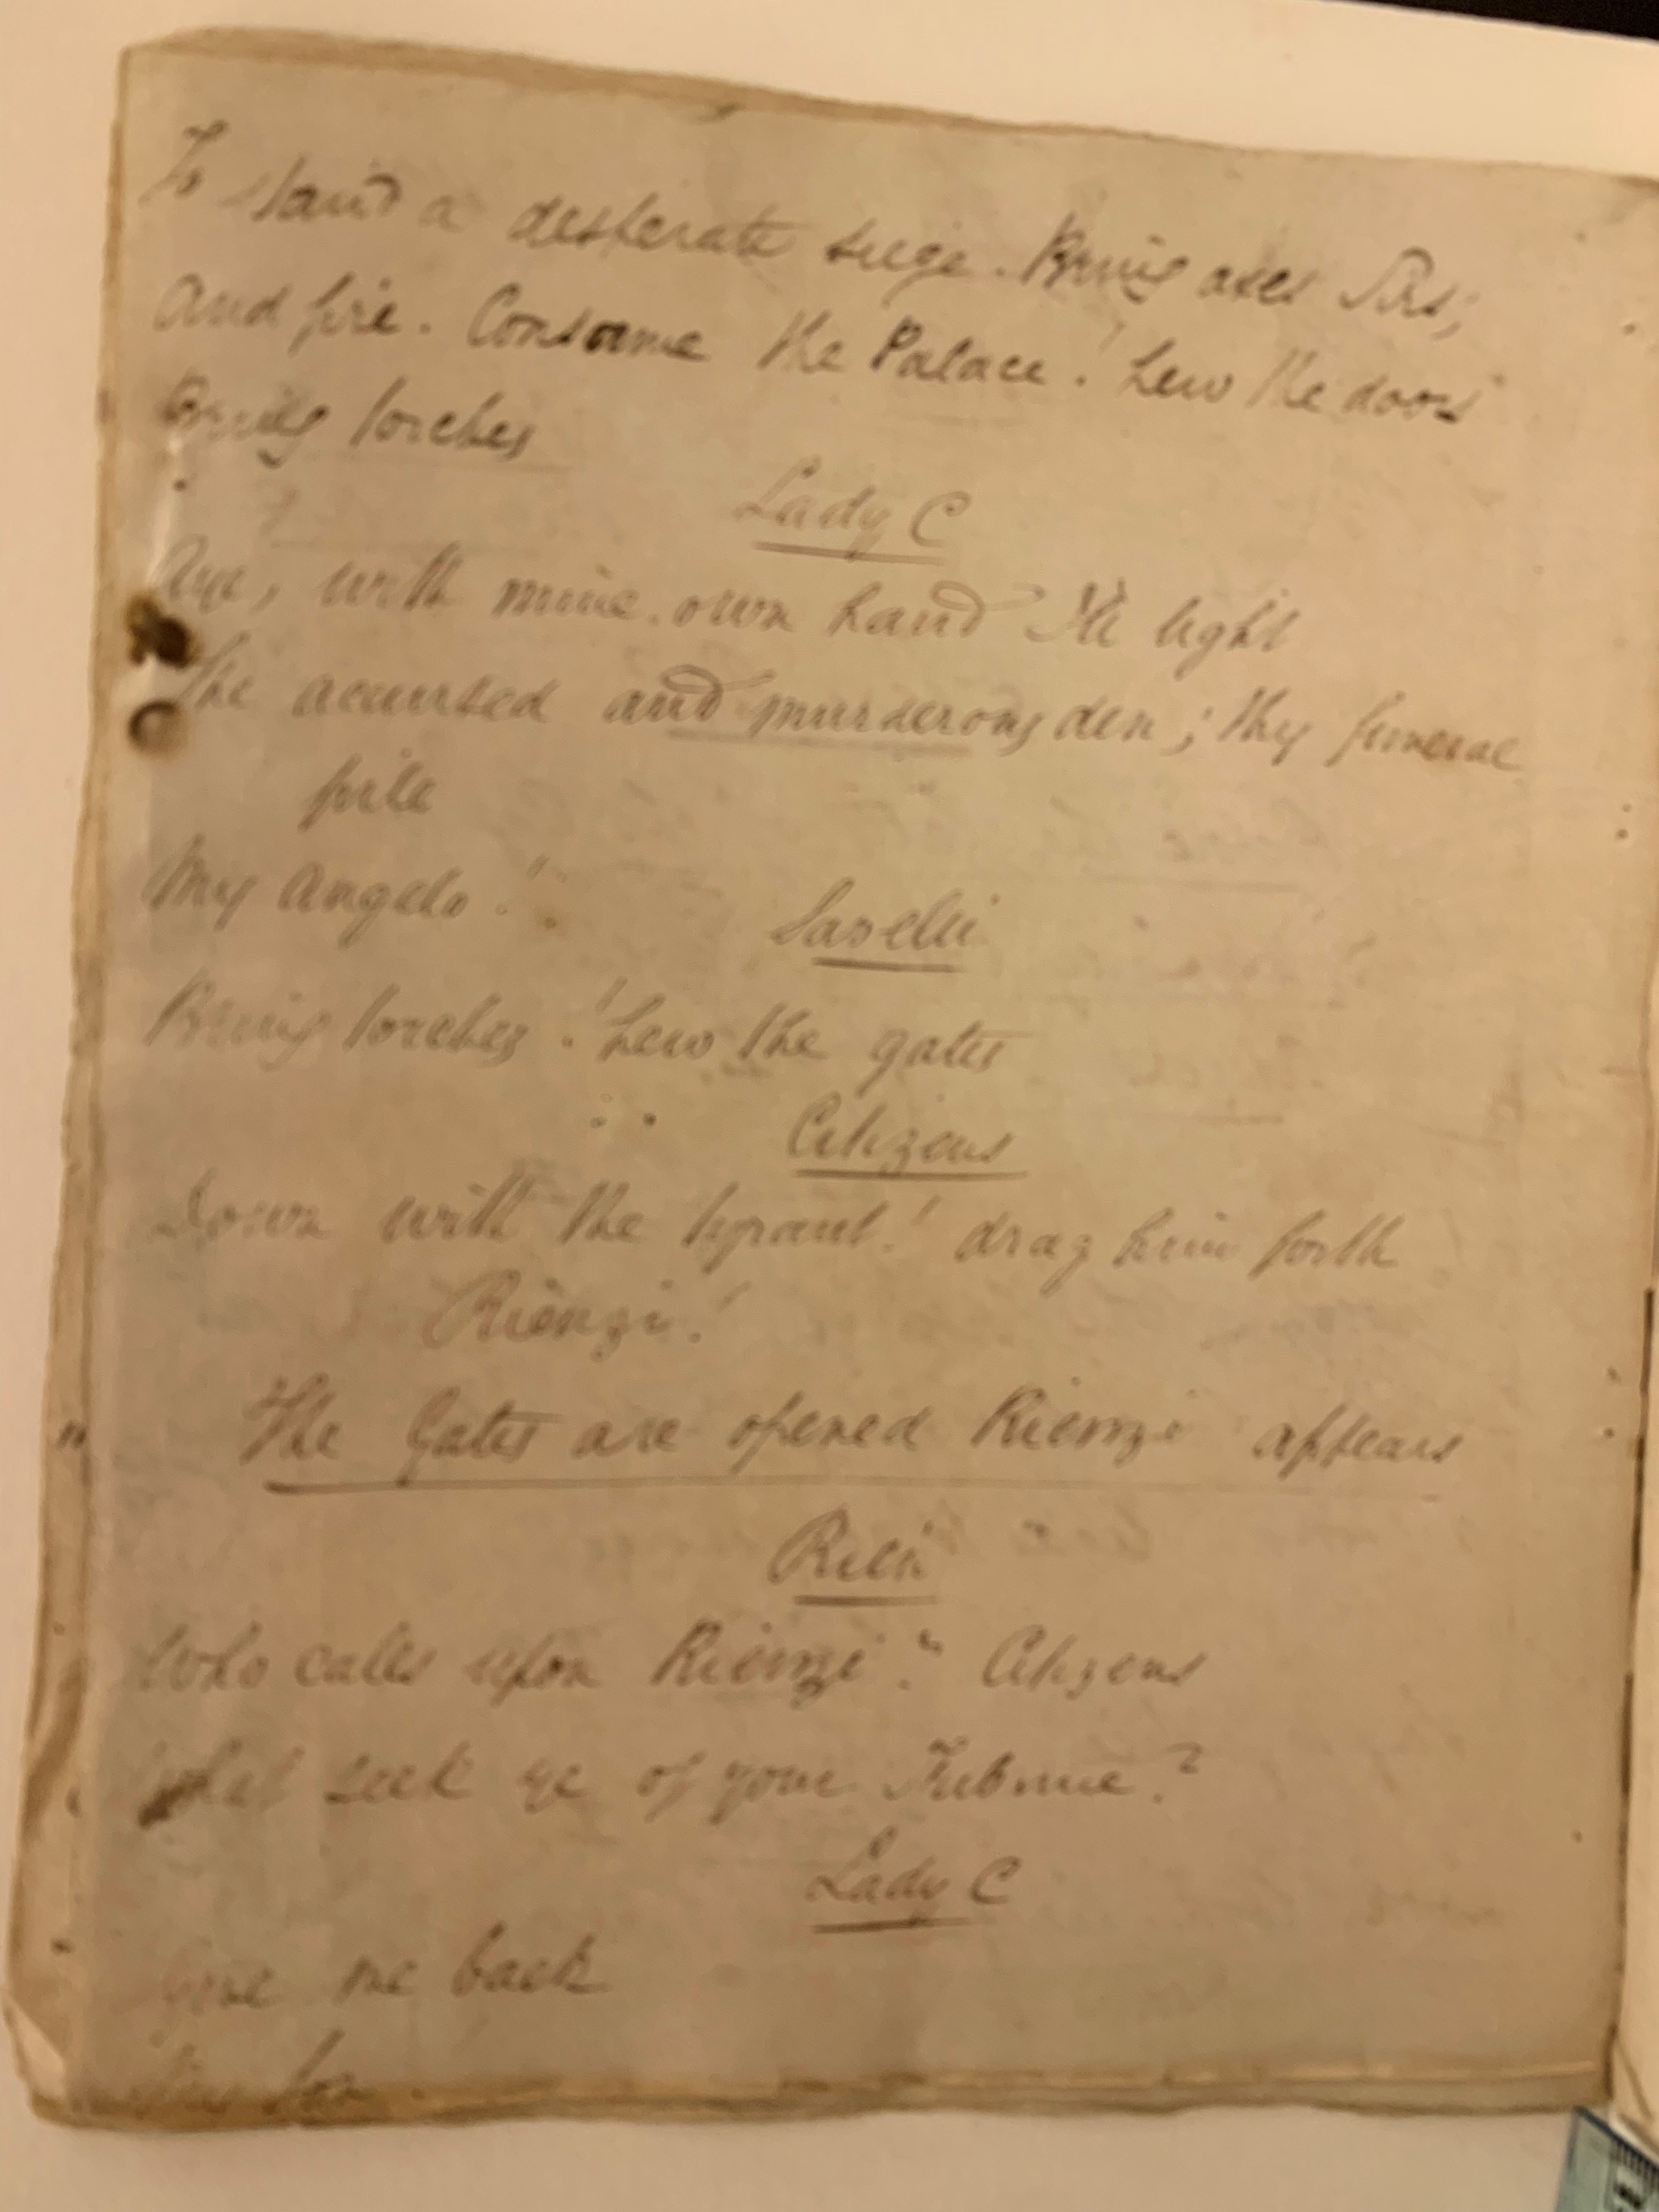 To stand a desperate siege. Bring axes Sirs;
And fire. Consume the Palace! hew the doors
Bring torches
Lady C
Aye, with mine own hand I'll light
The accursed and murderous den; thy funeral
pile
My Angelo!
Savelli
Bring torches! hew the gates
Citizens
Down with the tyrant! drag him forth
Rienzi!
The Gates are opened Rienzi appears
Rien
Who calls upon Rienzi? Citizens
What seek ye of your Tribune?
Lady C
Give me back
My son